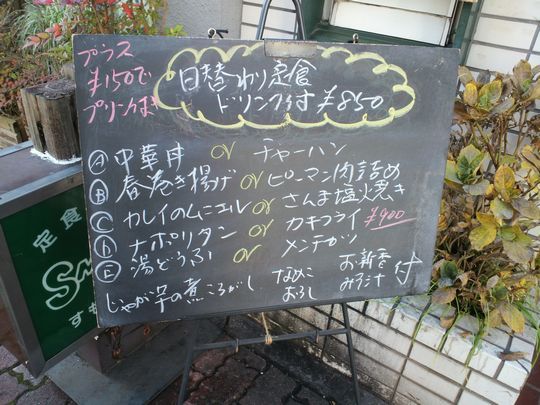 プラス
¥150で
プリン付き
日替わり定食
ドリンク付 ¥850
A 中華丼 or チャーハン
B 春巻き揚げ or ピーマン肉詰め
C カレイのムニエル or さんま塩焼き
D ナポリタン or カキフライ ¥900
E 湯どうふ or メンチカツ
じゃが芋の煮ころがし なめこおろし お新香 みそ汁 付
定食